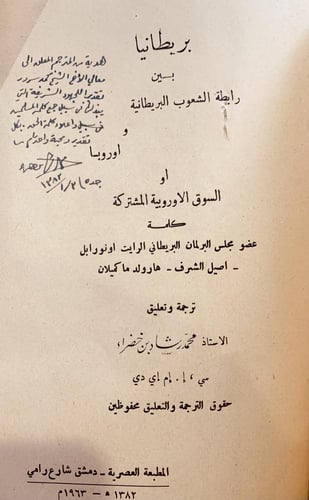 بريطانيا
بين
رابطة الشعوب البريطانية
و
اوروبا
او
السوق الاوروبية المشتركة
كلمة
عضو مجلس البرلمان البريطاني الرايت اونورابل
- اصيل الشرف - هارولد ماكميلان
ترجمة وتعليق
الاستاذ محمد رشاد بن خضراء
سي ، إ . إم إي دي
حقوق الترجمة والتعليق محفوظين
المطبعة العصرية - دمشق شارع رامي
١٣٨٢ هـ - ١٩٦٣ م
هدية من المترجم المعلق الى
معالي الأخ الشيخ محمد سرور
تقديرا للجهود الشريفة التي
في سبيل جمع كلمة المسلمين
تقدير ومحبة واحترام
جده